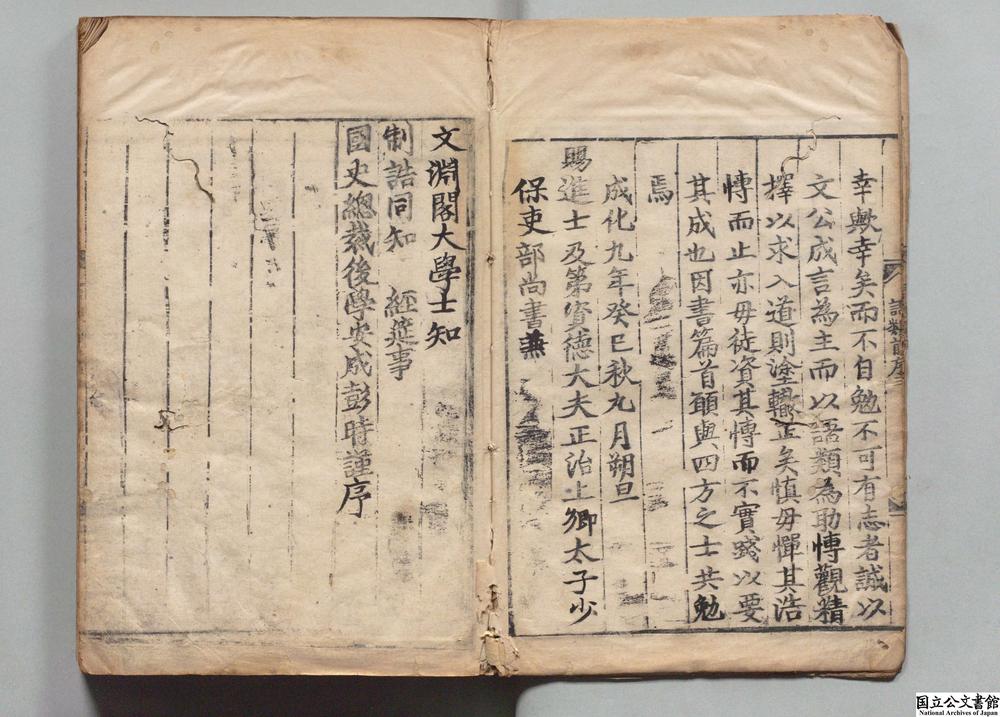 幸歟幸矣而不自勉不可有志者誠以
文公成言為主而以語類為助博觀精
擇以求入道則塗轍正矣慎毋憚其浩
博而止亦毋徒資其博而不實踐以要
其成也因書篇首願與四方之士共勉
焉
成化九年癸巳秋九月朔旦
賜進士及第資德大夫正治上卿太子少
保吏部尚書兼
文淵閣大學士知
制誥同知 經筵事
國史總裁後學安成彭時謹序
語類前序三
国立公文書館
National Archives of Japan